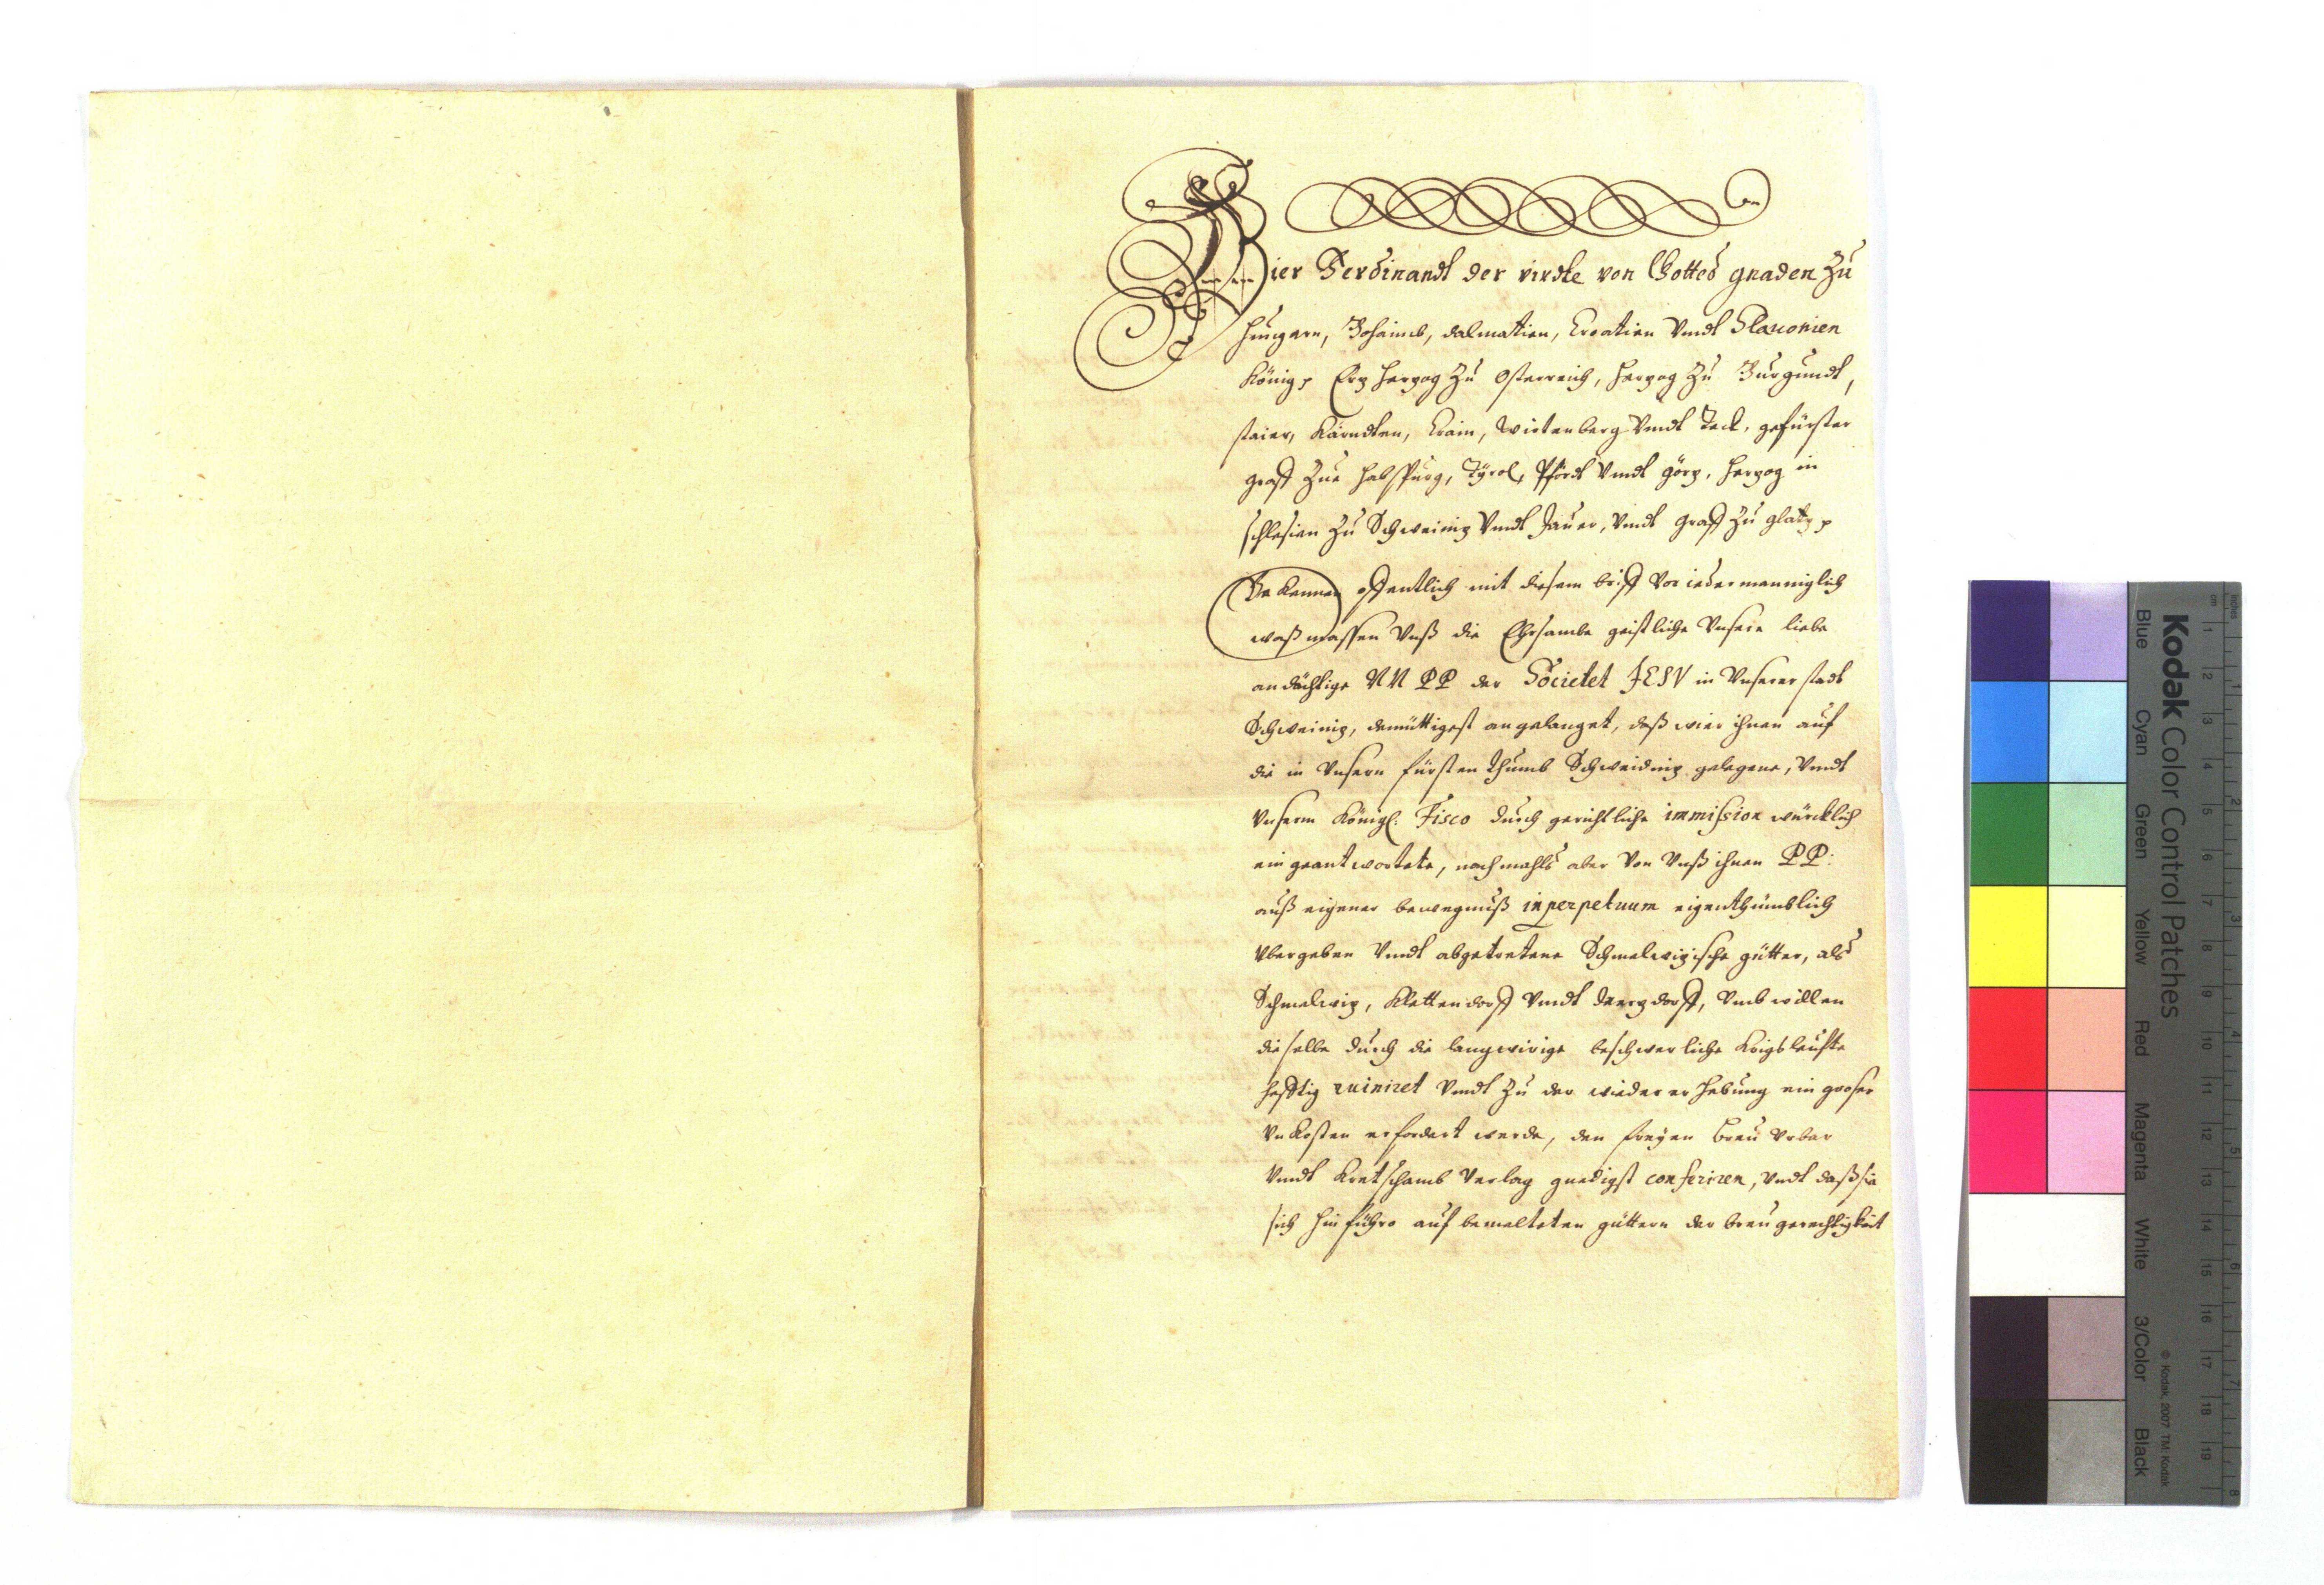 Wier Ferdinandt der virdte von Gottes gnaden Zu
Hungarn, Bohaimb, dalmatien, Croatien Vndt Slauonien
König, Erz Herzog Zu Osterreich, Herzog Zu Burgundt,
staier, Kärndten, Crain, Wirtenberg Vndt Teck, gefürster
graff Zue Habspurg, Tÿrol, Pfirdt Vndt görz, Herzog in
schlesien Zu Schweiniz Vndt Jauer, Vndt Graff Zu glatz
Bekennen offentlich mit diesem briff Vor iedermanniglich
waß massen Vnß die Ehrsambe geistliche Vnsere liebe
andächtige NN PP der Societet JESV in Vnserer stadt
Schweiniz, demüttigst angelanget, daß wier ihnen auf
die in Vnsern fürstenthumb Schweidniz gelegene, Vndt
Vnserm Königl: Fisco durch gerichtliche immission würcklich
eingeantwortete, nachmahls aber Von Vnß ihnen PP:
auß eigener bewegnuß in perpetuum eigenthumblich
Vbergeben Vndt abgetretene Schmelwizische gütter, als
Schmelwiz, Klettendorff Vndt, Vmb willen
dieselbe durch die langwirige beschwerliche Krigsleufte
hefftig ruiniret Vndt Zu der wieder erhebung ein groser
Vnkosten erfordert werde, den freyen breu Vrbar
Vndt Kretschamb Verlag gnedigst conferiren, Vndt daß sie
sich hinführo auf bemelteten güttern der breugerechtigkeit